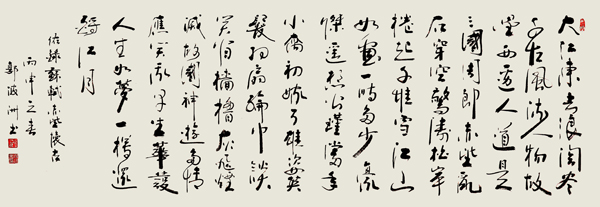 大江東去浪淘尽
千古風流人物故
壘西邊人道是
三國周郎赤壁亂
石穿空驚濤拍岸
捲起千堆雪江山
如畫一時多少豪
傑遙想公瑾當年
小喬初嫁了雄姿英
發羽扇綸巾談
笑間檣櫓灰飛煙
滅故國神遊多情
應笑我早生華髮
人生如夢一樽還
酹江月
錄蘇軾赤壁懷古
丙申之春
郭波洲書